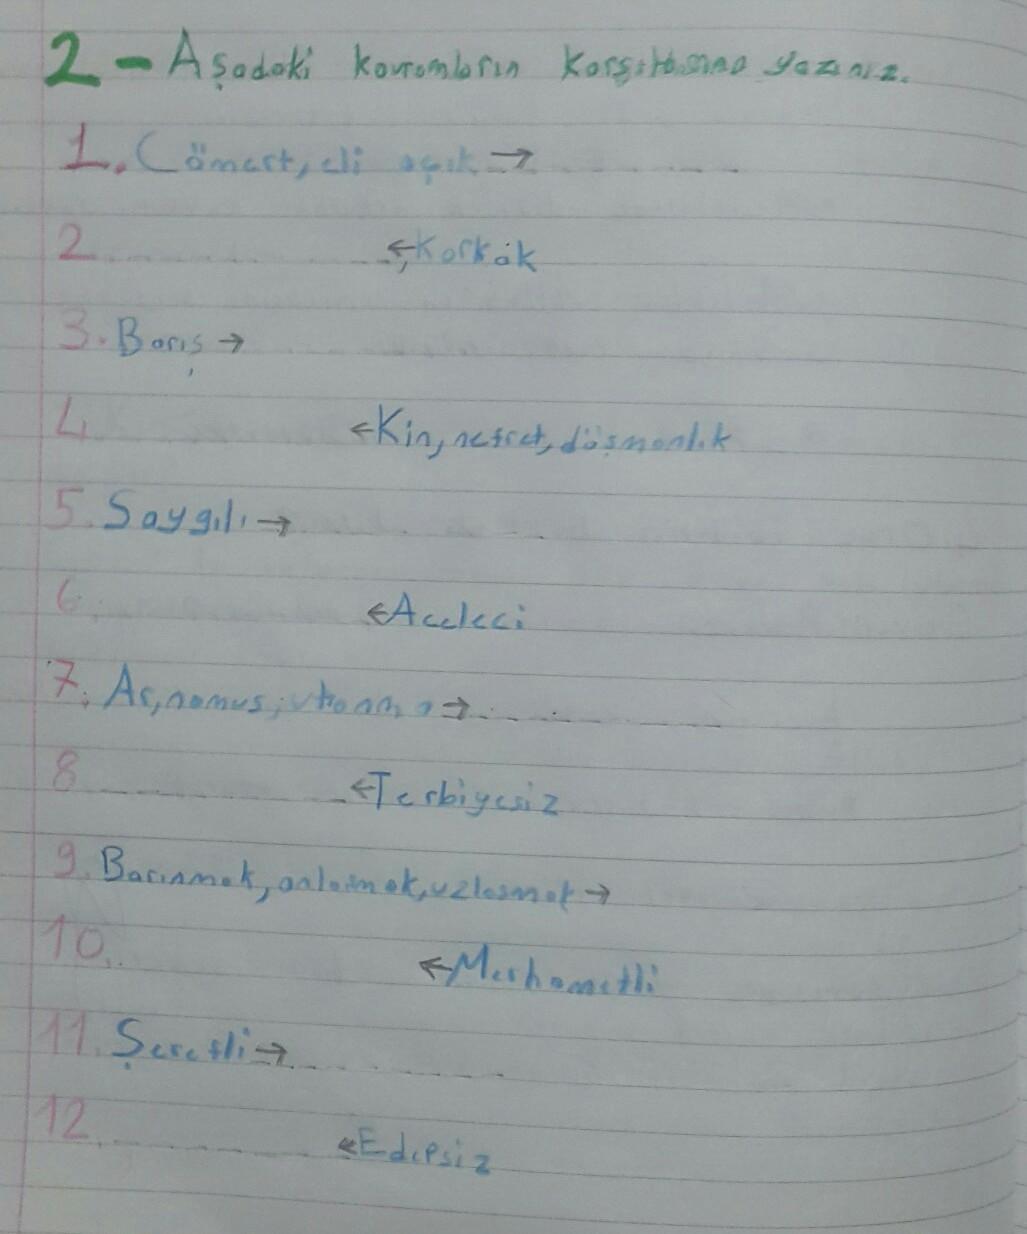 2-Aşadaki kavramların karşıtlarına yazınız.
1. Cömert, eli açık →
2 ← Korkak
3. Barış →
4 ← Kin, nefret, düşmanlık
5. Saygılı →
6. ← Aceleci
7. Ar, namus, utanma →
8 ← Terbiyesiz
9. Barınmak, anlaşmak, uzlaşmak →
10. ← Merhametli
11. Şerefli →
12. ← Edepsiz